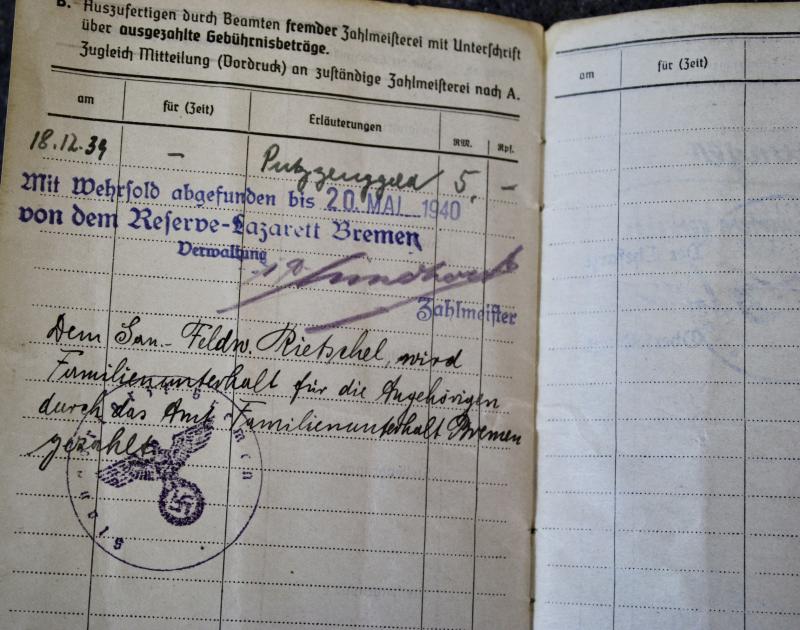 B. Auszufertigen durch Beamten fremder Zahlmeisterei mit Unterschrift
über ausgezahlte Gebührnisbeträge.
Zugleich Mitteilung (Vordruck) an zuständige Zahlmeisterei nach A.
am für (Zeit) Erläuterungen RM. Rpf.
18.12.39 — Putzzeuggeld 5,—
Mit Wehrsold abgefunden bis 20. MAI 1940
von dem Reserve-Lazarett Bremen
Verwaltung
Zahlmeister
Dem San.-Feldw. Rietschel, wird
Familienunterhalt für die Angehörigen
durch das Amt Familienunterhalt Bremen
gezahlt.
am für (Zeit)